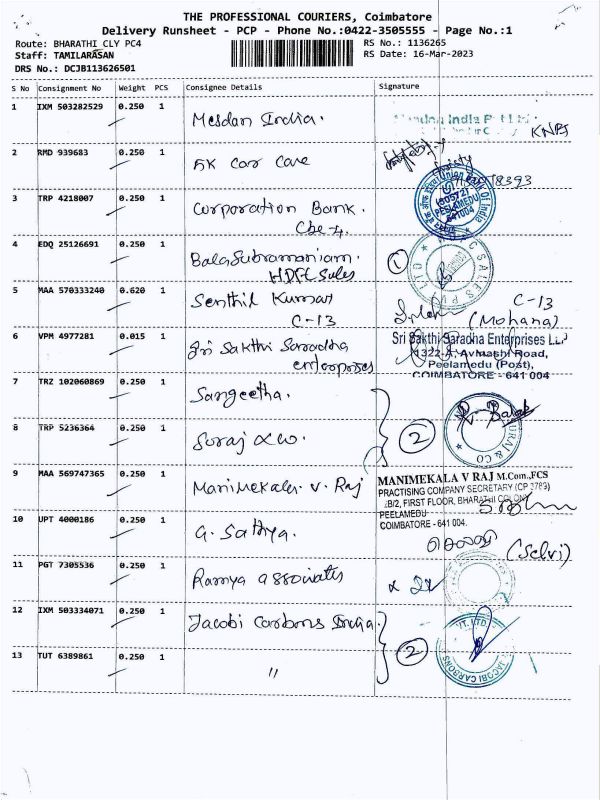 THE PROFESSIONAL COURIERS, Coimbatore
Delivery Runsheet - PCP - Phone No.:0422-3505555 - Page No.:1
Route: BHARATHI CLY PC4
RS No.: 1136265
Staff: TAMILARASAN
RS Date: 16-Mar-2023
DRS No.: DCJB113626501
S No Consignment No Weight PCS Consignee Details Signature
1 IXM 503282529 0.250 1 Mesdan India.
India P t Ltd
KNPS
2 RMD 939683 0.250 1 AK Car Care
3 TRP 4218007 0.250 1 Corporation Bank.
Cbe 4.
Union Bank Of India
(50572)
PEELAMEDU
641004
4 EDQ 25126691 0.250 1 Balasubramaniam.
HDFC Sales
1
C SALES PVT LTD
5 MAA 570333240 0.620 1 Senthil Kumar
C-13
C-13
(Mohana)
6 VPM 4977281 0.015 1 Sri Sakthi Saradha
enterprises
Sri Sakthi Saradha Enterprises LLP
1322-A, Avinashi Road,
Peelamedu (Post),
COIMBATORE - 641 004
7 TRZ 102060869 0.250 1 Sangeetha.
8 TRP 5236364 0.250 1 Suraj & co.
2
SURAJ & CO
9 MAA 569747365 0.250 1 Manimekala. V. Raj
MANIMEKALA V RAJ M.Com.,FCS
PRACTISING COMPANY SECRETARY (CP 3783)
B/2, FIRST FLOOR, BHARATHI COLONY
PEELAMEDU
COIMBATORE - 641 004.
10 UPT 4000186 0.250 1 G. Sathya.
(Selvi)
11 PGT 7305536 0.250 1 Ramya associates
12 IXM 503334071 0.250 1 Jacobi Carbons India.
2
JACOBI CARBONS
13 TUT 6389861 0.250 1 "